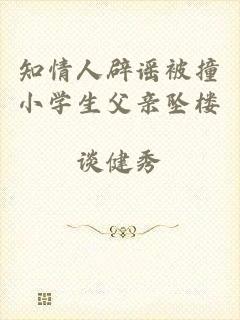 知情人辟谣被撞
小学生父亲坠楼
谈健秀